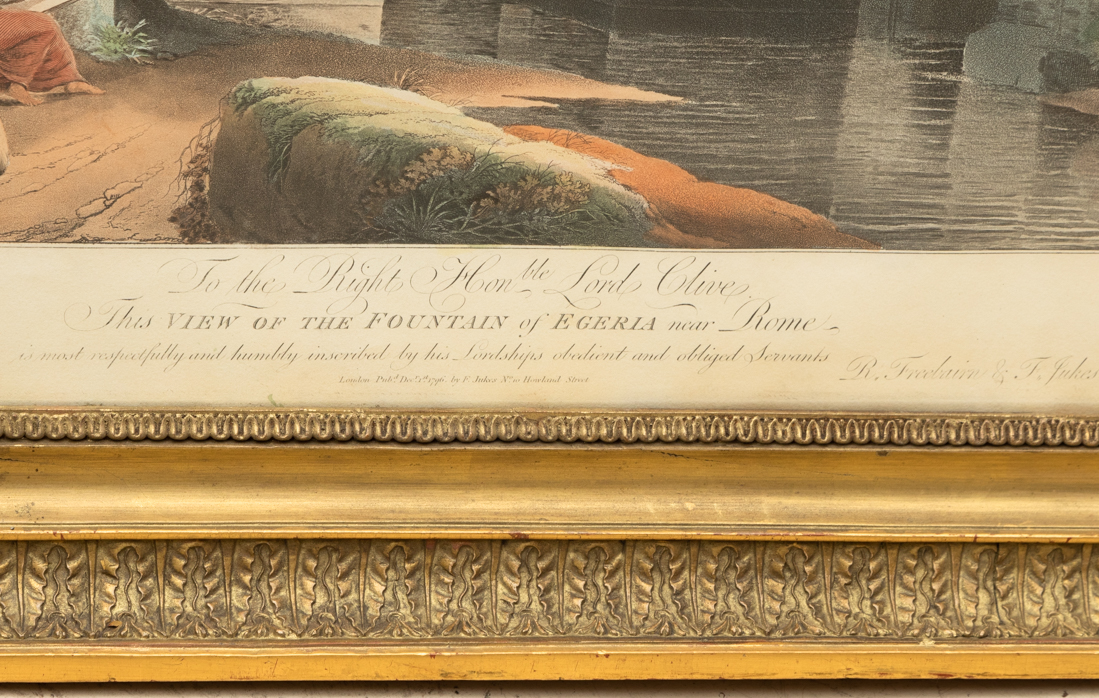 To the Right Hon.ble Lord Clive,
This VIEW OF THE FOUNTAIN of EGERIA near Rome
is most respectfully and humbly inscribed by his Lordships obedient and obliged Servants
R. Freebairn & F. Jukes
London Pub.d Dec.r 1.st 1796. by F. Jukes N.o 10 Howland Street